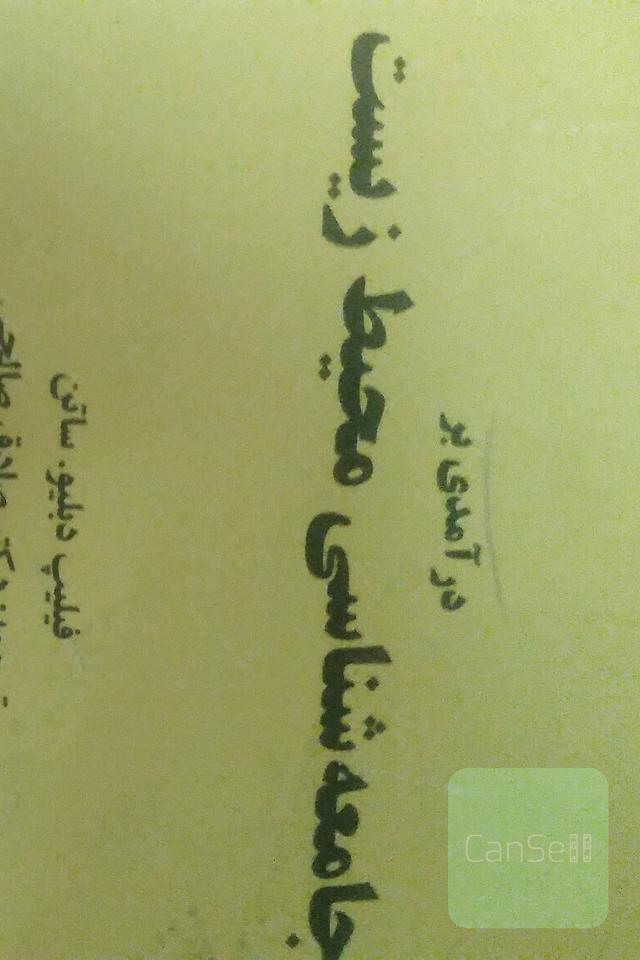 در آمدی بر
جامعه شناسی محیط زیست
فیلیپ دبلیو. ساتن
صادق صالحی
CanSell